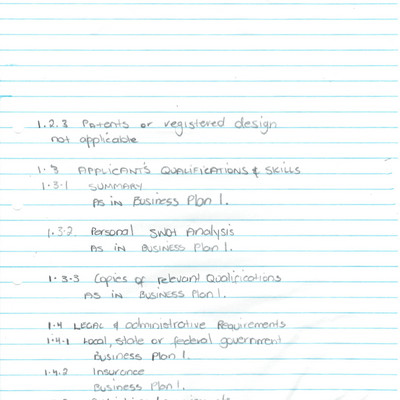 1.2.3 Patents or registered design
not applicable
1.3 APPLICANT'S QUALIFICATIONS & SKILLS
1.3.1 SUMMARY
AS IN BUSINESS Plan 1.
1.3.2. Personal SWOT Analysis
AS IN BUSINESS Plan 1.
1.3.3 Copies of relevant Qualifications
AS IN BUSINESS Plan 1.
1.4 LEGAL & administrative Requirements
1.4.1 Local, state or federal government
Business Plan 1.
1.4.2 Insurance
Business Plan 1.